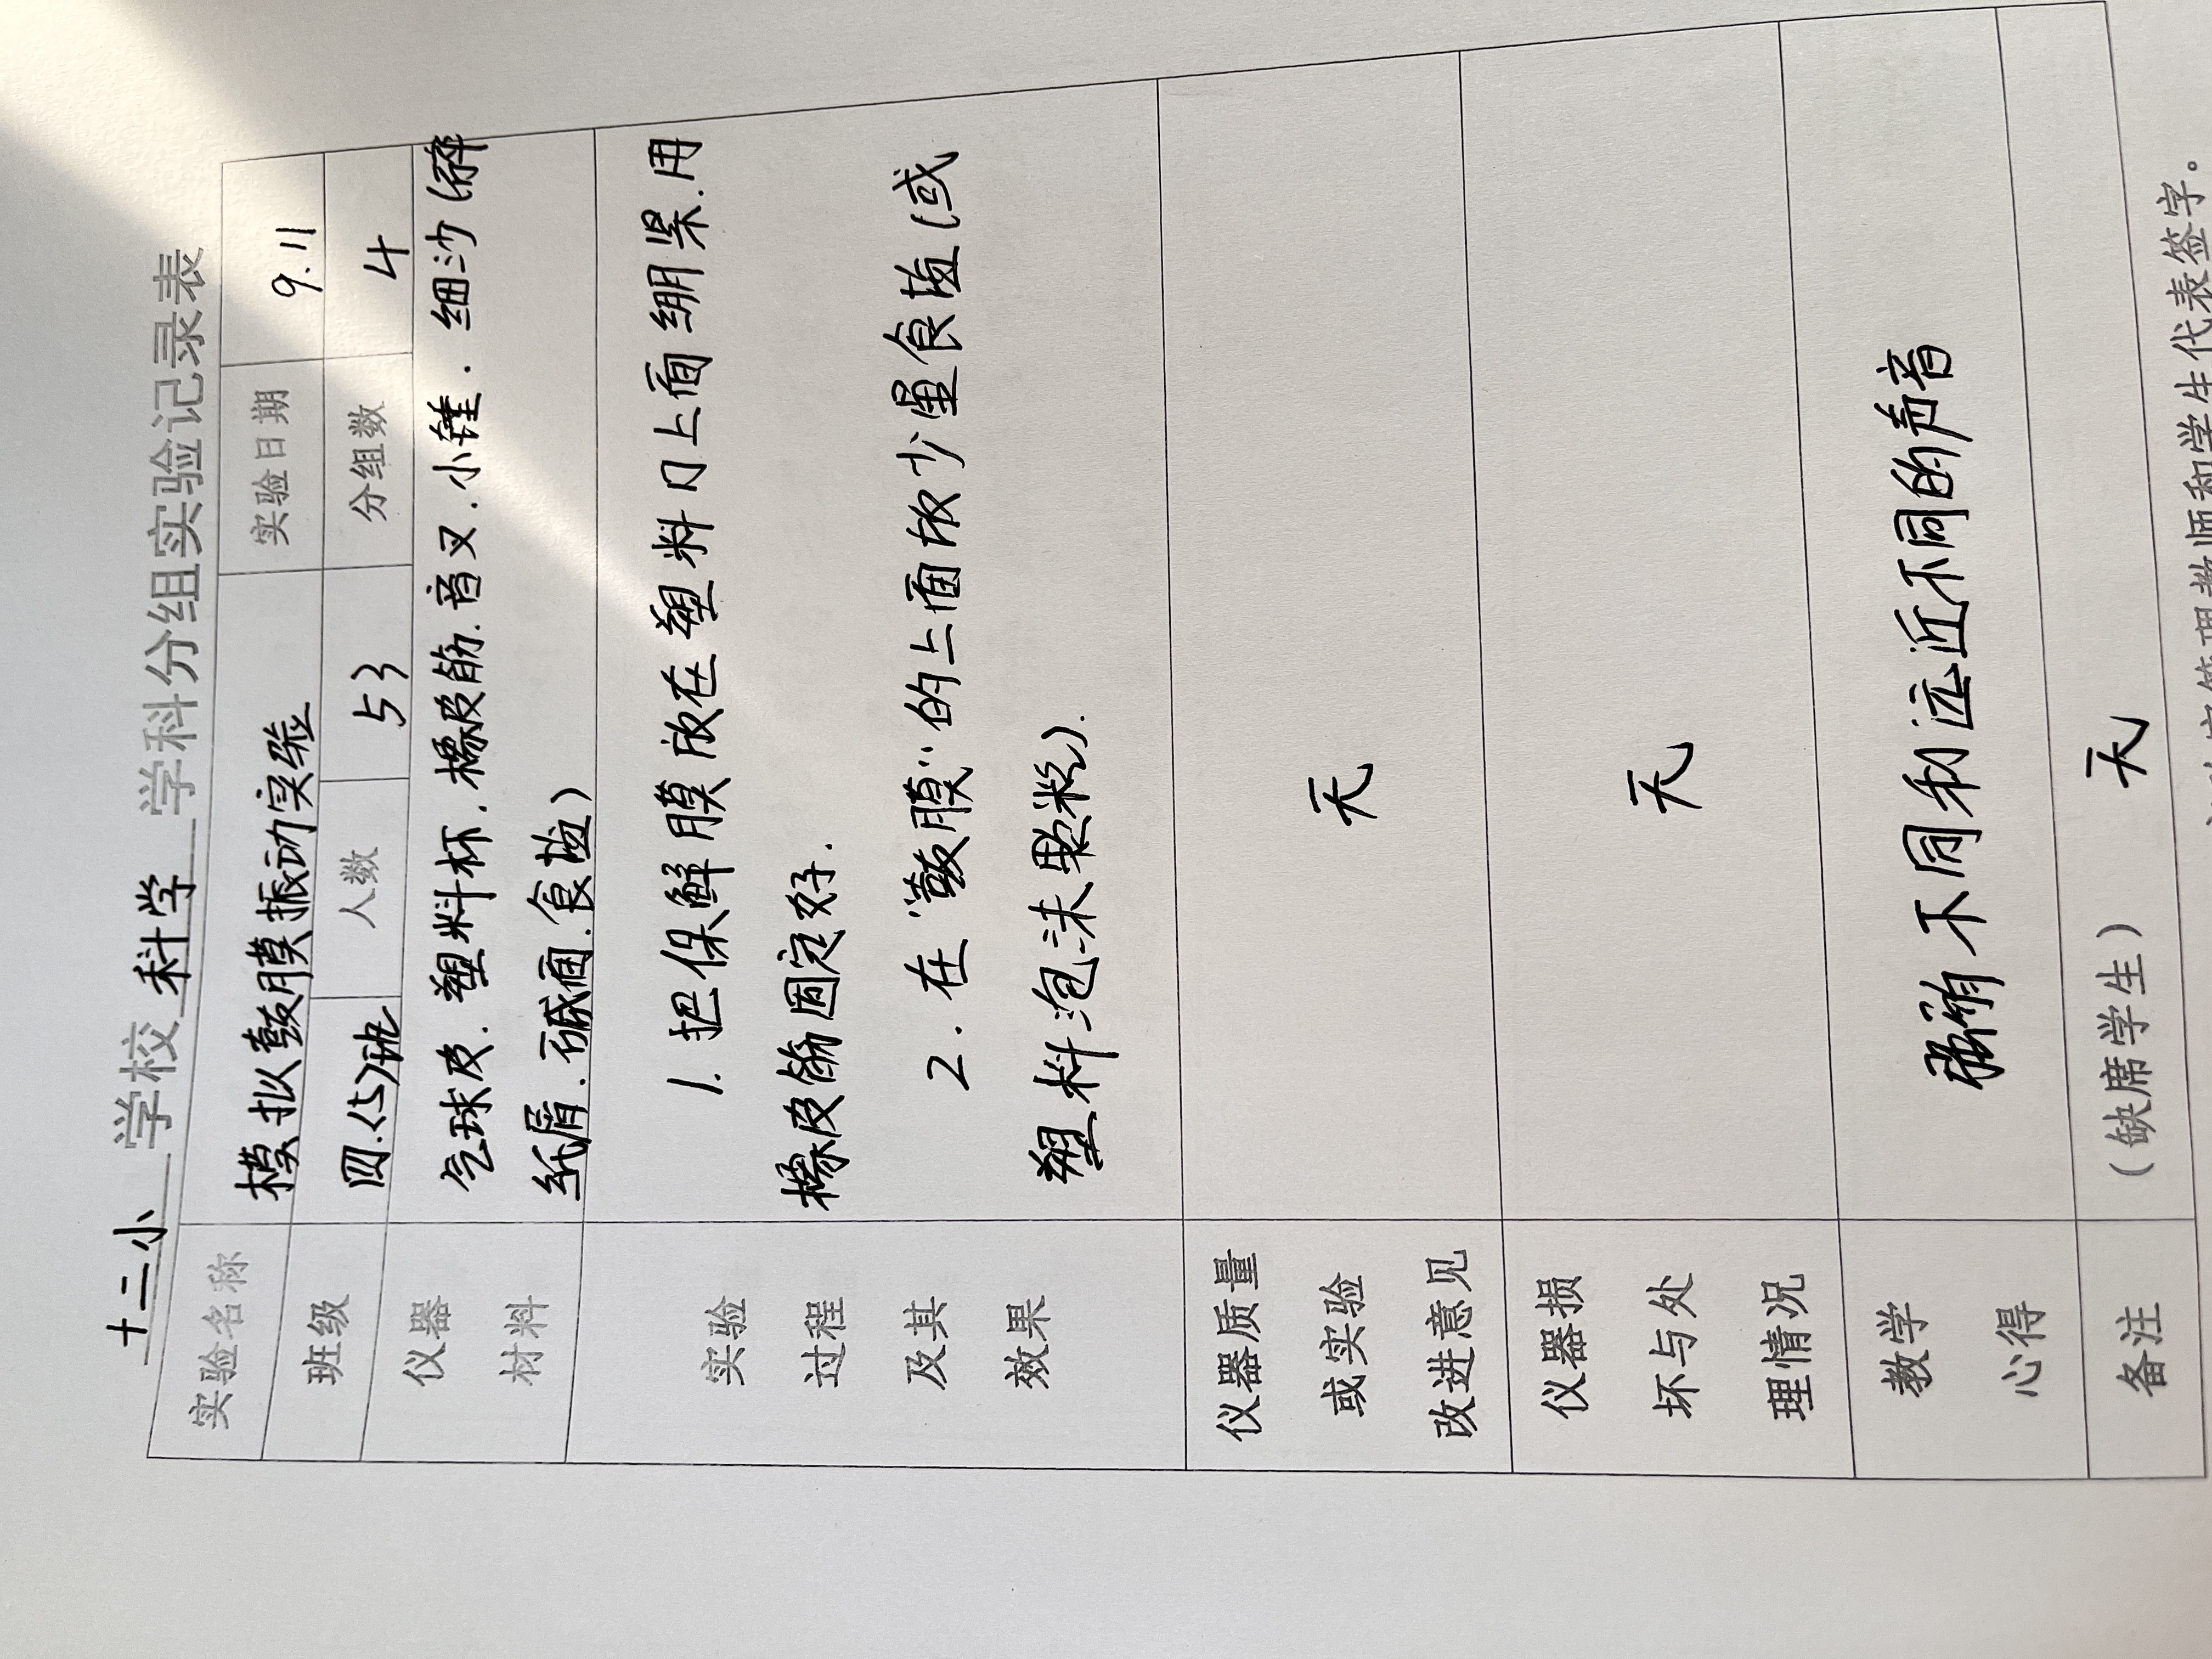 十二小 学校 科学 学科分组实验记录表
实验名称 模拟鼓膜振动实验 实验日期 9.11
班级 四.(5)班 人数 53 分组数 4
仪器
材料
气球皮.塑料杯.橡皮筋.音叉.小锤.细沙(碎
纸屑.碱面.食盐)
实验
过程
及其
效果
1.把保鲜膜放在塑料口上面绷紧.用
橡皮筋固定好.
2.在“鼓膜”的上面放少量食盐(或
塑料泡沫颗粒).
仪器质量
或实验
改进意见
无
仪器损
坏与处
理情况
无
教学
心得
不同和远近不同的声音
备注 (缺席学生) 无
管理教师和学生代表签字。